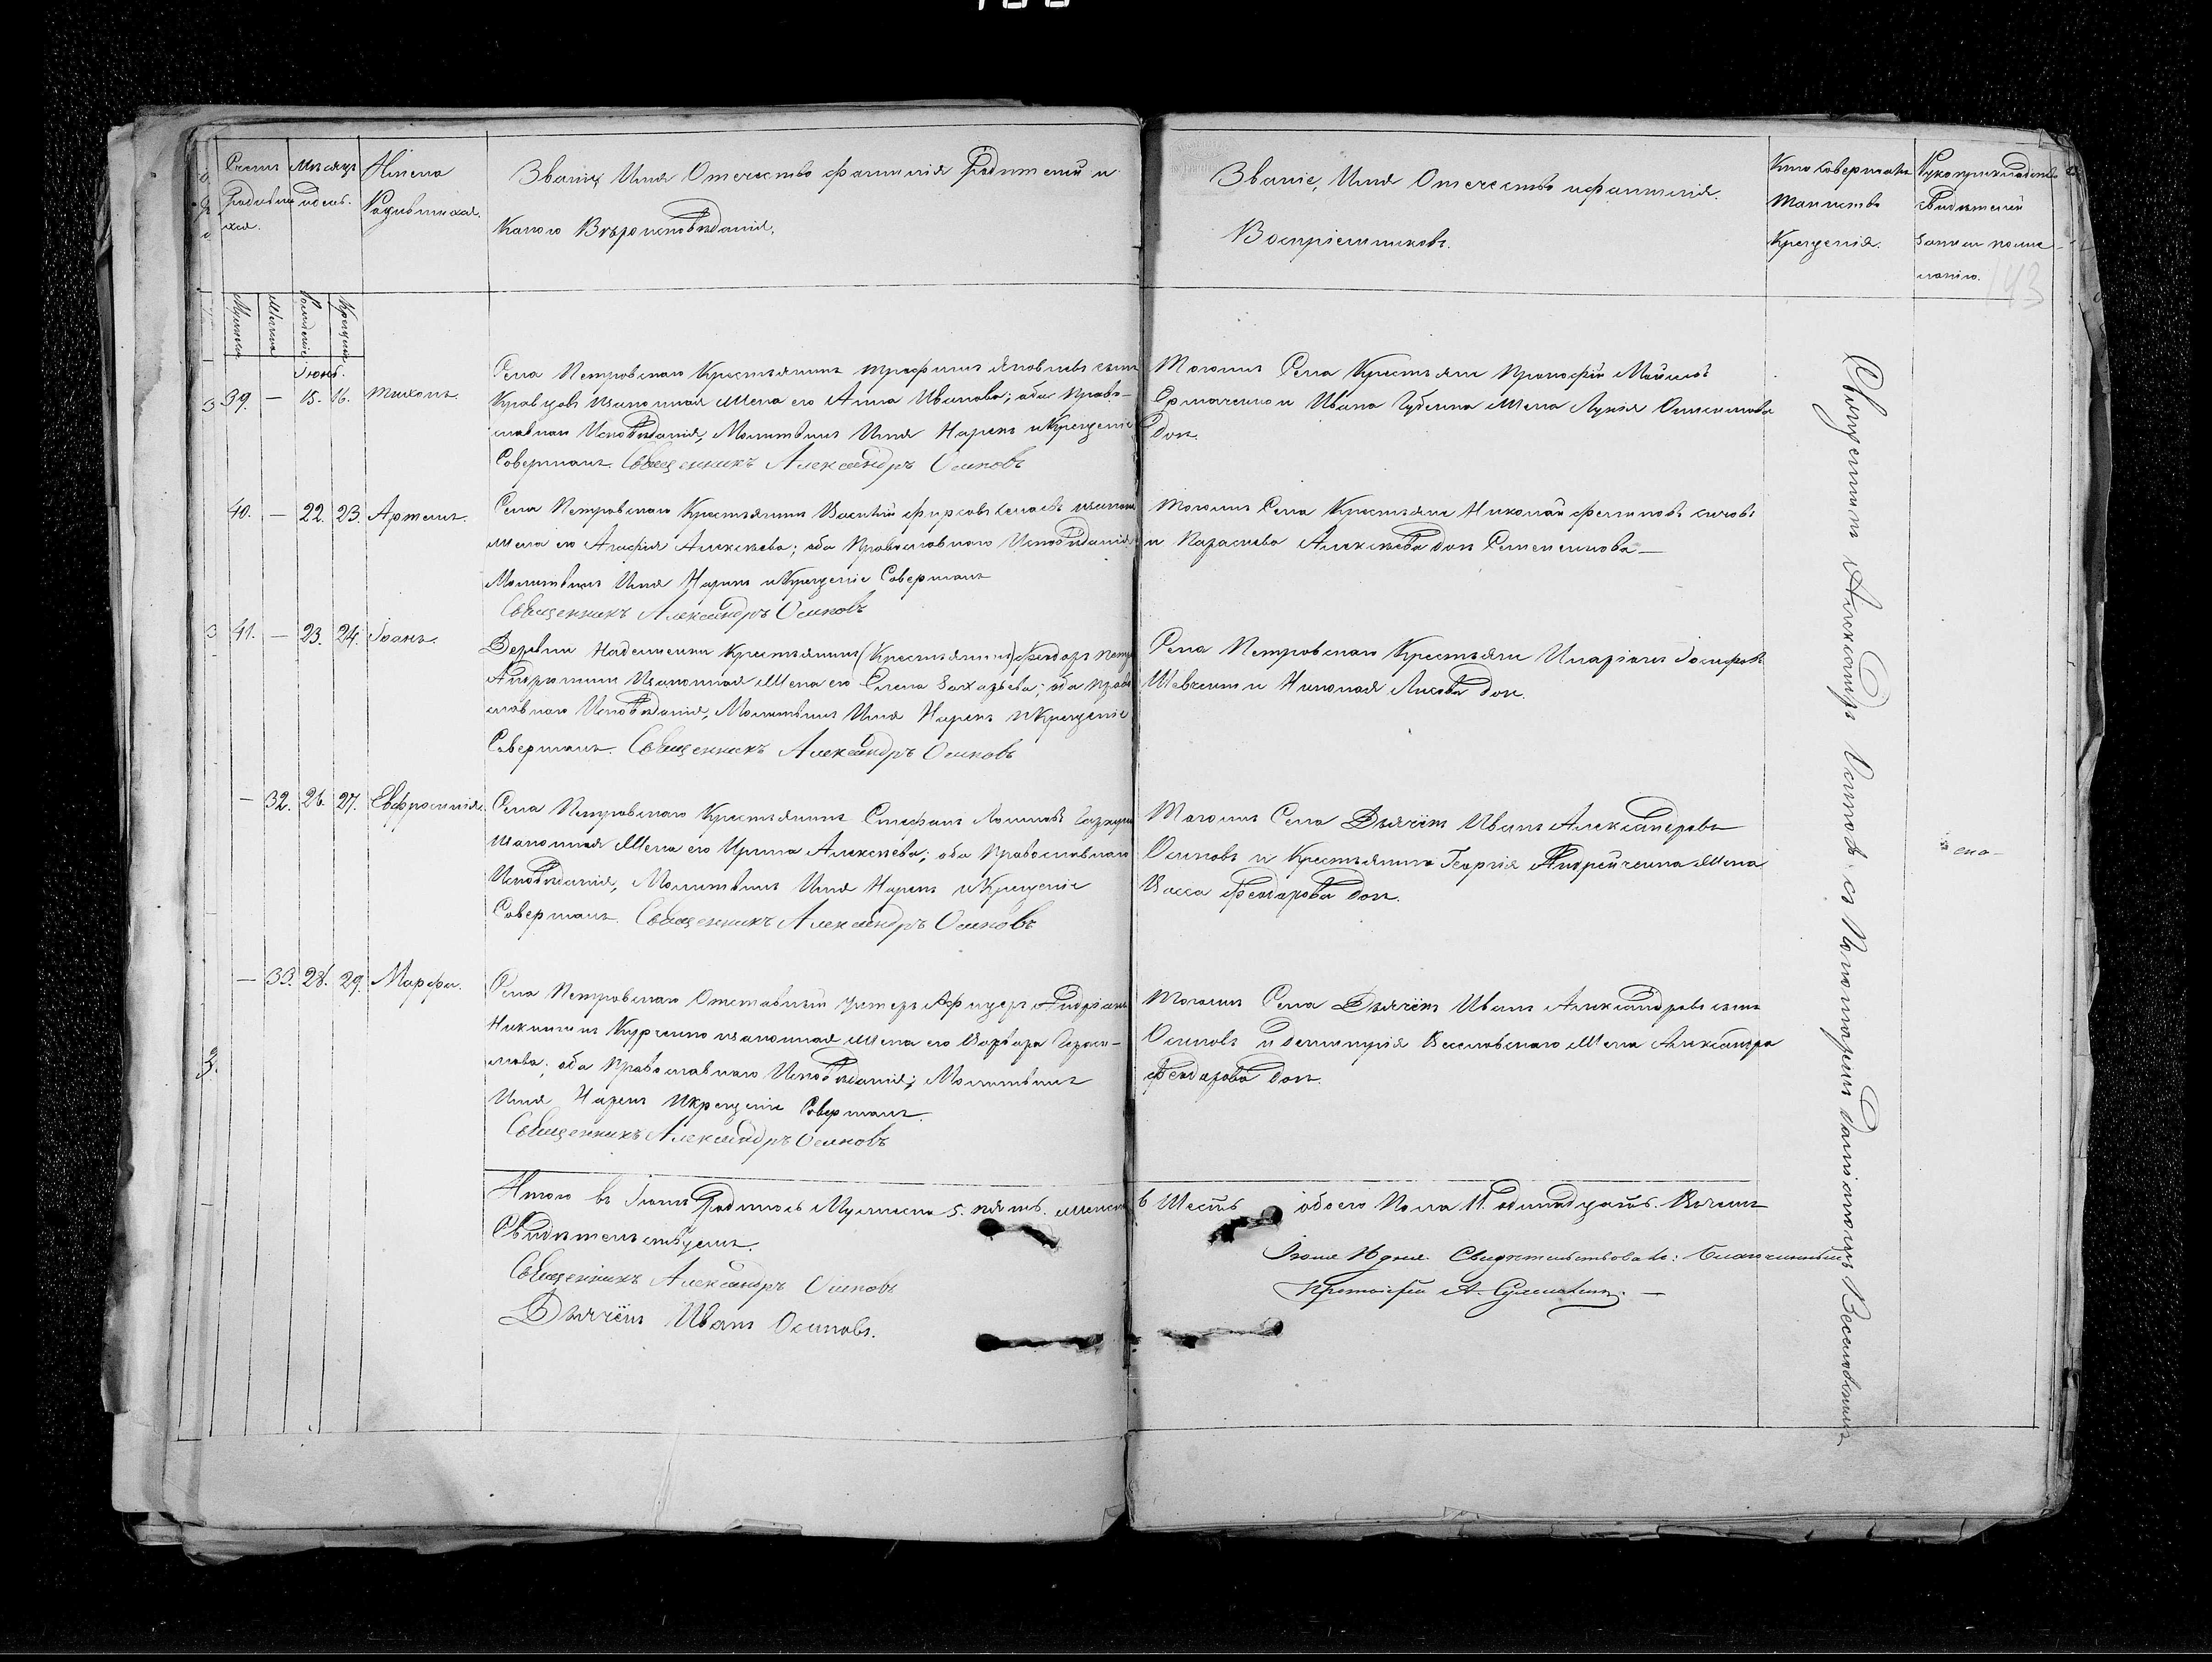 Счетъ
Родивших
хся.
Месяцъ
и день.
Имена
Родившихся.
Званіе, Имя Отечество фамилія Родителей и
Какого Вѣроисповѣданія.
Званіе, Имя Отечество и фамилія.
Воспріемниковъ.
Кто совершалъ
Таинство
Крещенія.
Рукоприкладство
Свидѣтелей
записи по же-
ланію.
143
Мужеска
Женска
Рожденіе
Крещеніе
Іюнь.
39. — 15. 16. Тихонъ.
Села Петровскаго Крестьянинъ Трофимъ Яковлевъ сынъ
Кравцовъ и законная Жена его Анна Иванова; оба Право-
славнаго Исповѣданія, Молитвилъ Имя Нарекъ и Крещеніе
Совершалъ. Священникъ Александръ Осиповъ
Тогожъ Села Крестьяне Прокофій Мойсеев
Ермаченко и Ивана Губенка Жена Лукія
Дочь.
40. — 22. 23. Артемъ.
Села Петровскаго Крестьянинъ Василій Фирсовъ и законная
Жена его Агафія Алексѣева; оба Православнаго Исповѣданія
Молитвилъ Имя Нарекъ и Крещеніе Совершалъ
Священникъ Александръ Осиповъ
Тогожъ Села Крестьяне Николай Филиповъ
и Параскева Алексѣева дочь Семеннова —
41. — 23. 24. Іоанъ.
Деревни Надежены Крестьянинъ (Крестьянинъ) Феодоръ
и законная Жена его Елена Захарьева; оба Право
славнаго Исповѣданія, Молитвилъ Имя Нарекъ и Крещеніе
Совершалъ. Священникъ Александръ Осиповъ
Села Петровскаго Крестьяне Иларіонъ Іосифовъ
Шевченко и Дочь.
— 32. 26. 27. Евфросинія.
Села Петровскаго Крестьянинъ Стефанъ Логиновъ
законная Жена его Ирина Алексѣева; оба Православнаго
Исповѣданія, Молитвилъ Имя Нарекъ и Крещеніе
Совершалъ. Священникъ Александръ Осиповъ
Тогожъ Села Дьячёкъ Иванъ Александровъ
Осиповъ и Крестьянина Георгія Андрейченка Жена
Васса Феодорова Дочь.
— 33. 28. 29. Марфа.
Села Петровскаго Отставный Унтеръ Афицеръ Андріанъ
Никитинъ Курченко и законная Жена его Варвара Гераси-
мова; оба Православнаго Исповѣданія; Молитвилъ
Имя Нарекъ и крещеніе Совершалъ.
Священникъ Александръ Осиповъ
Тогожъ Села Дьячёкъ Иванъ Александровъ сынъ
Осиповъ и Димитрія Веселовскаго Жена Александра
Феодорова Дочь.
Священникъ Александръ Осиповъ съ Пономаремъ Веселовскимъ
Итого въ Іюнѣ Родилось Мужеска 5. пять. Женска 6 Шесть обоего Пола 11. одинадцать. В чемъ
Свидѣтельствуемъ.
Священникъ Александръ Осиповъ
Дьячёкъ Иванъ Осиповъ.
Свидѣтельствовалъ: Благочинный
Протоіерей А.